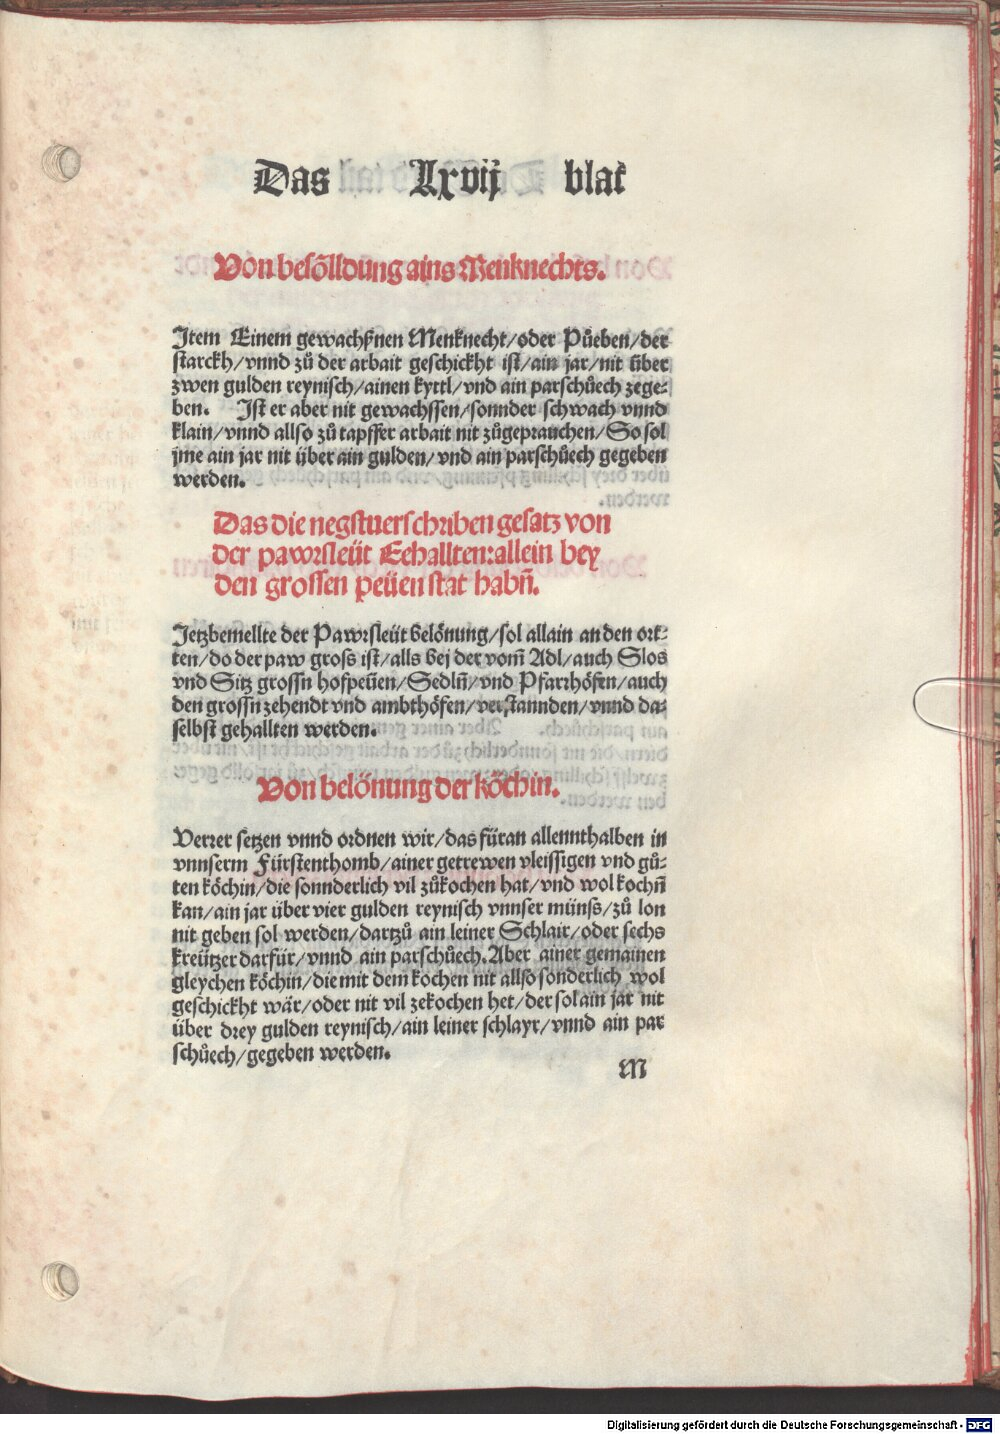 Das Lxvij blat
Von besõlldung ains Menknechts.
Jtem Einem gewachßnen Menknecht/oder Půeben/der
starckh/vnnd zů der arbait geschickht ist/ain jar/nit über
zwen gulden reynisch/ainen kyttl/vnd ain parschůech zege⸗
ben. Jst er aber nit gewachssen/sonnder schwach vnnd
klain/vnnd allso zů tapffer arbait nit zůgeprauchen/So sol
jme ain jar nit über ain gulden/vnd ain parschůech gegeben
werden.
Das die negstuerschriben gesatz von
der pawrsleüt Eehallten:allein bey
den grossen peüen stat habñ.
Jetzbemellte der Pawrsleüt belönung/sol allain an den ort⸗
ten/do der paw gross ist/alls bej der vom̃ Adl/auch Slos
vnd Sitz grossn hofpeüen/Sedlñ/vnd Pfarrhöfen/auch
den grossn zehendt vnd ambthöfen/verstannden/vnnd da⸗
selbst gehallten werden.
Von belönung der köchin.
Verrer setzen vnnd ordnen wir/das füran allennthalben in
vnnserm Fürstenthomb/ainer getrewen vleissigen vnd gů⸗
ten köchin/die sonnderlich vil zůkochen hat/vnd wol kochñ
kan/ain jar über vier gulden reynisch vnnser münss/zů lon
nit geben sol werden/dartzů ain leiner Schlair/oder sechs
kreützer darfür/vnnd ain parschůech. Aber ainer gemainen
gleychen köchin/die mit dem kochen nit allso sonderlich wol
geschickht wär/oder nit vil zekochen het/der sol ain jar nit
über drey gulden reynisch/ain leiner schlayr/vnnd ain par
schůech/gegeben werden.
M
Digitalisierung gefördert durch die Deutsche Forschungsgemeinschaft - DFG